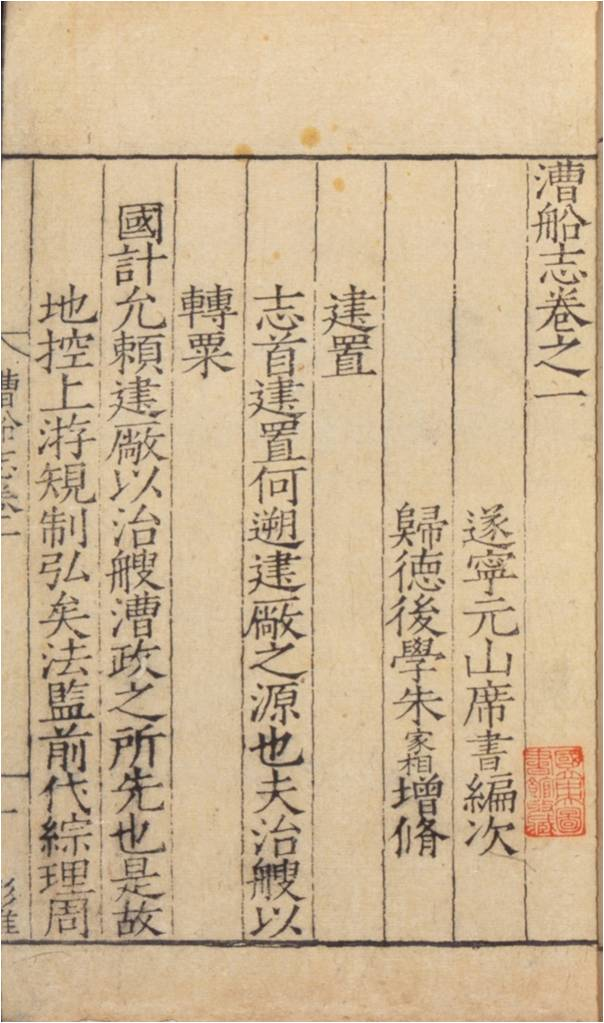 漕船志卷之一
遂寧元山席書編次
歸德後學朱家相增脩
建置
志首建置何遡建厰之源也夫治艘以
轉粟
國計允賴建厰以治艘漕政之所先也是故
地控上游規制弘矣法監前代綜理周
漕船志卷一
一